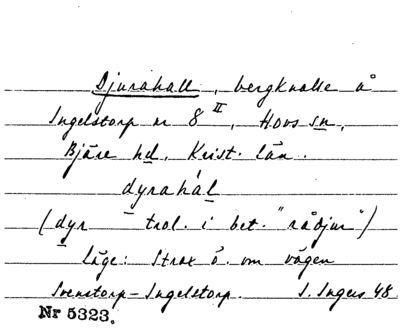 Djurahall, bergknalle å
Ingelstorp nr 8 II, Hovs sn,
Bjäre hd, Krist. län.
dyrahál
(dyr trol. i bet. "rådjur")
Läge: Strax ö. om vägen
Svenstorp-Ingelstorp. I. Ingers 48.
Nr 5323.